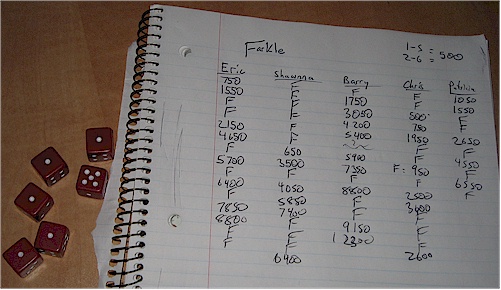 Farkle
1-5
2-6 = 500
Eric Shawnna Barry Chris Patricia
750 F F F 1050
1550 F 1750 F 1550
F F 3050 500 F
F F 4200 750 F
2150 F 5400 1950 2650
4650 F F
F 650 5900 F 4550
5700 3500 7350 F: 950 F
F F F 6550
6400 4050 8800 2500 F
F 5850 F 3600
7850 7400 F F
8800 F 9150 F
F F 12300 F
F F
6400 2600